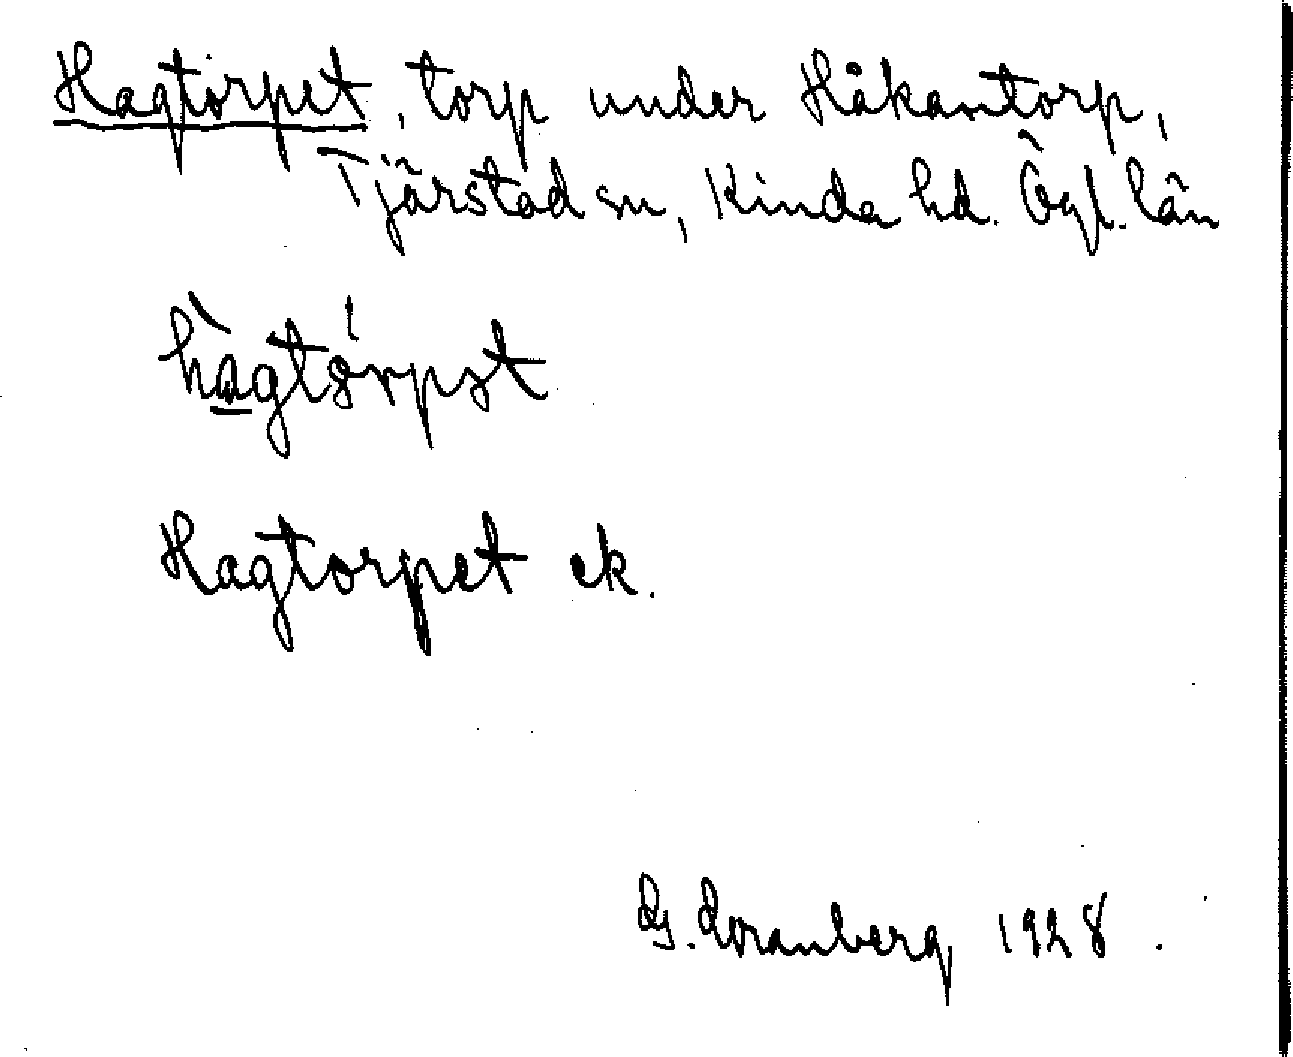 Hagtorpet, torp under Håkantorp,
Tjärstad sn, Kinda hd. Ögl. län
hàgtórpət
Hagtorpet ek.
G. Lovanberg 1928.